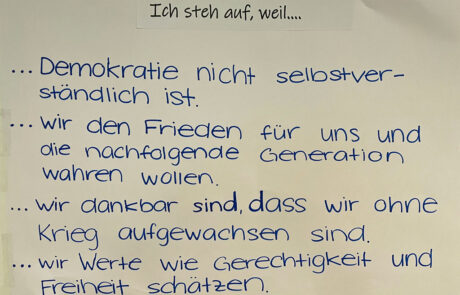 Ich steh auf, weil....
... Demokratie nicht selbstver-
ständlich ist.
... wir den Frieden für uns und
die nachfolgende Generation
wahren wollen.
... wir dankbar sind, dass wir ohne
Krieg aufgewachsen sind.
... wir Werte wie Gerechtigkeit und
Freiheit schätzen.